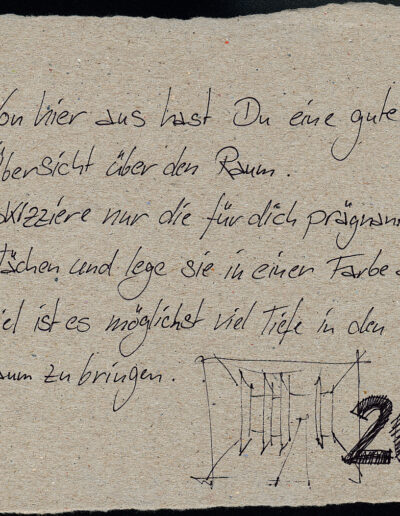 von hier aus hast Du eine gute
Übersicht über den Raum.
skizziere nur die für dich prägnan
lächen und lege sie in einer Farbe
iel ist es möglichst viel Tiefe in den
aum zu bringen.
2